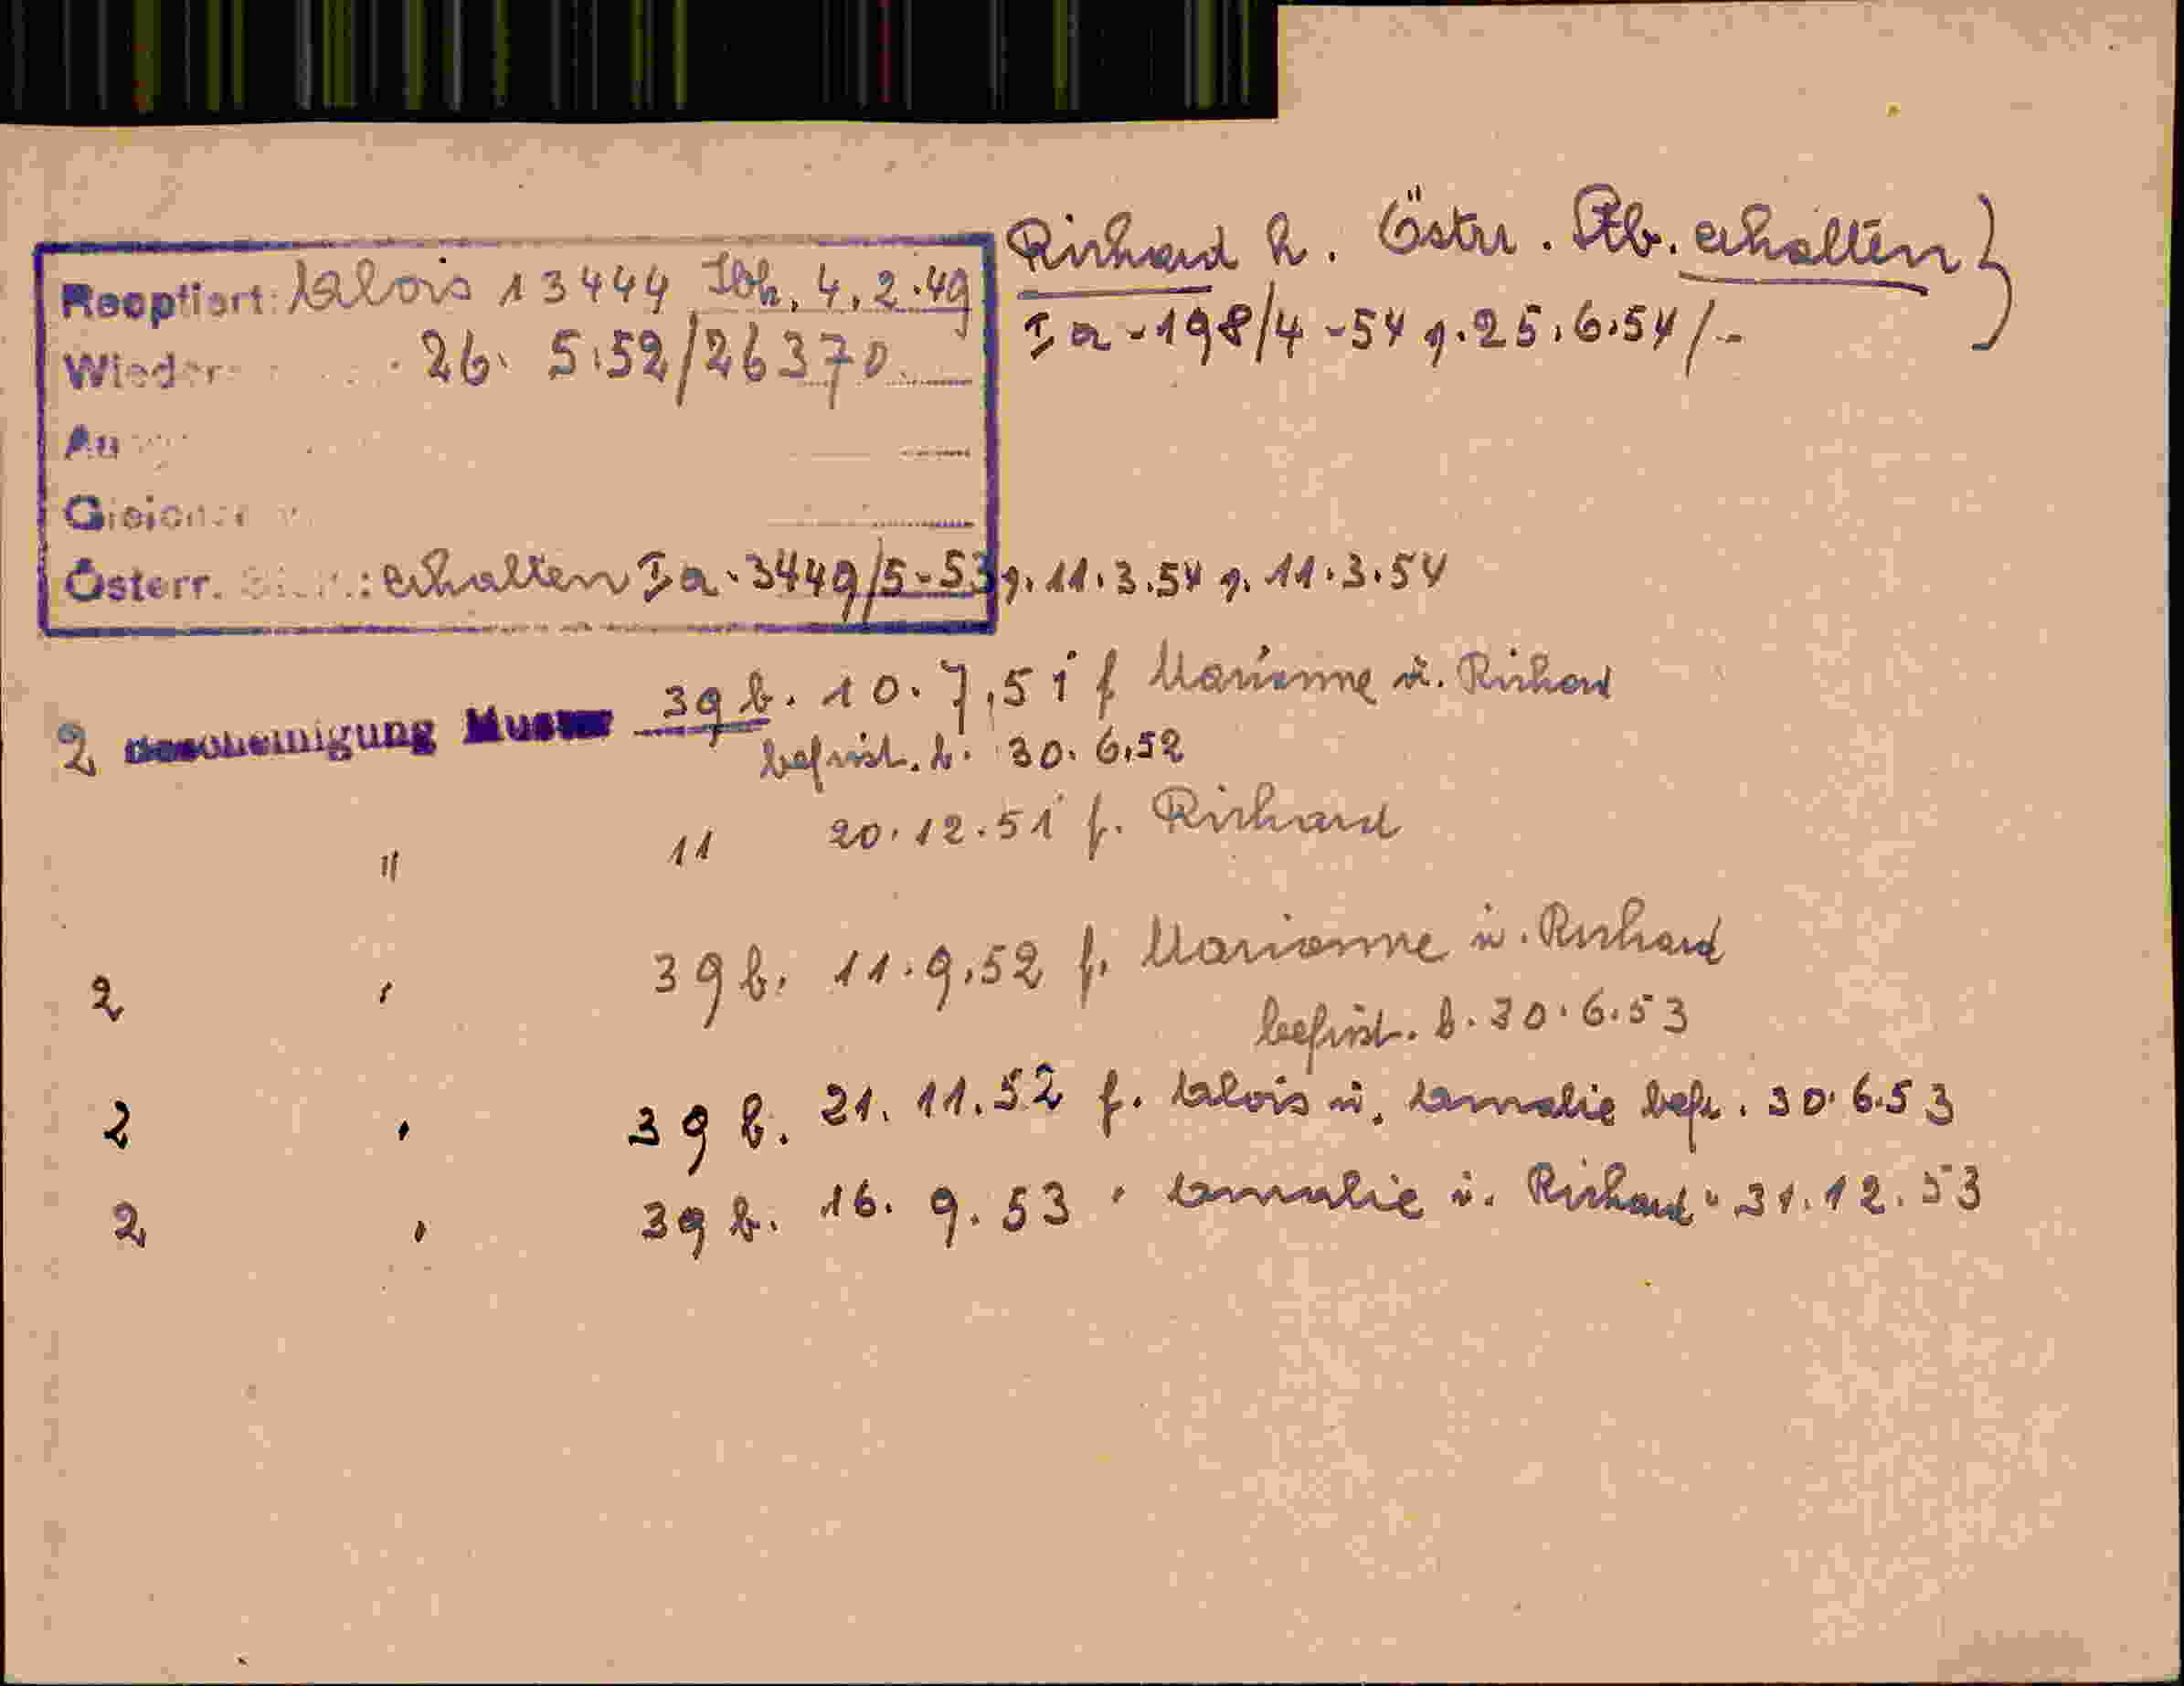 Reoptiert: Alois 13444 Ibk. 4.2.49
Richard h. Österr. Stb. erhalten }
Ia-198/4-54 v. 25.6.54/-
Wieder 26. 5.52/26370
Österr. : erhalten Ia-3449/5-53 v. 11.3.54 v. 11.3.54
2 Bescheinigung Muster 39 b. 10.7.51 f Marianne u. Richard
befrist. b. 30.6.52
" 11 20.12.51 f. Richard
2 " 39 b. 11.9.52 f. Marianne u. Richard
befrist. b. 30.6.53
2 " 39 b. 21.11.52 f. Alois u. Amalie befr. 30.6.53
2 " 39 b. 16.9.53 " Amalie u. Richard " 31.12.53